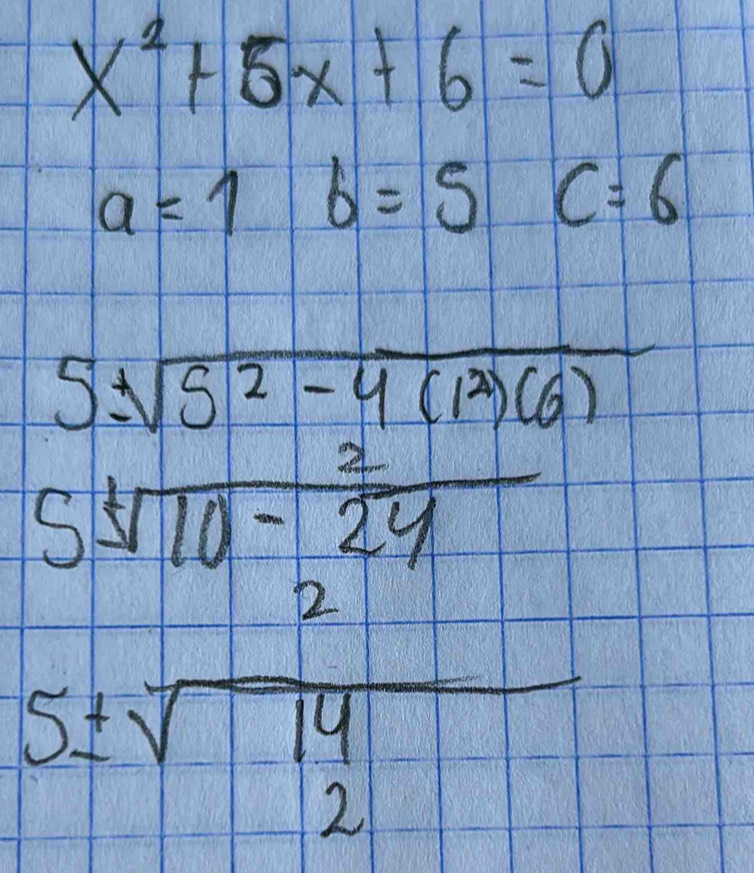 x² + 5x + 6 = 0
a = 1 b = 5 c = 6
5 ± √5² - 4 (1²)(6)
2
5 ± √10 - 24
2
5 ± √14
2